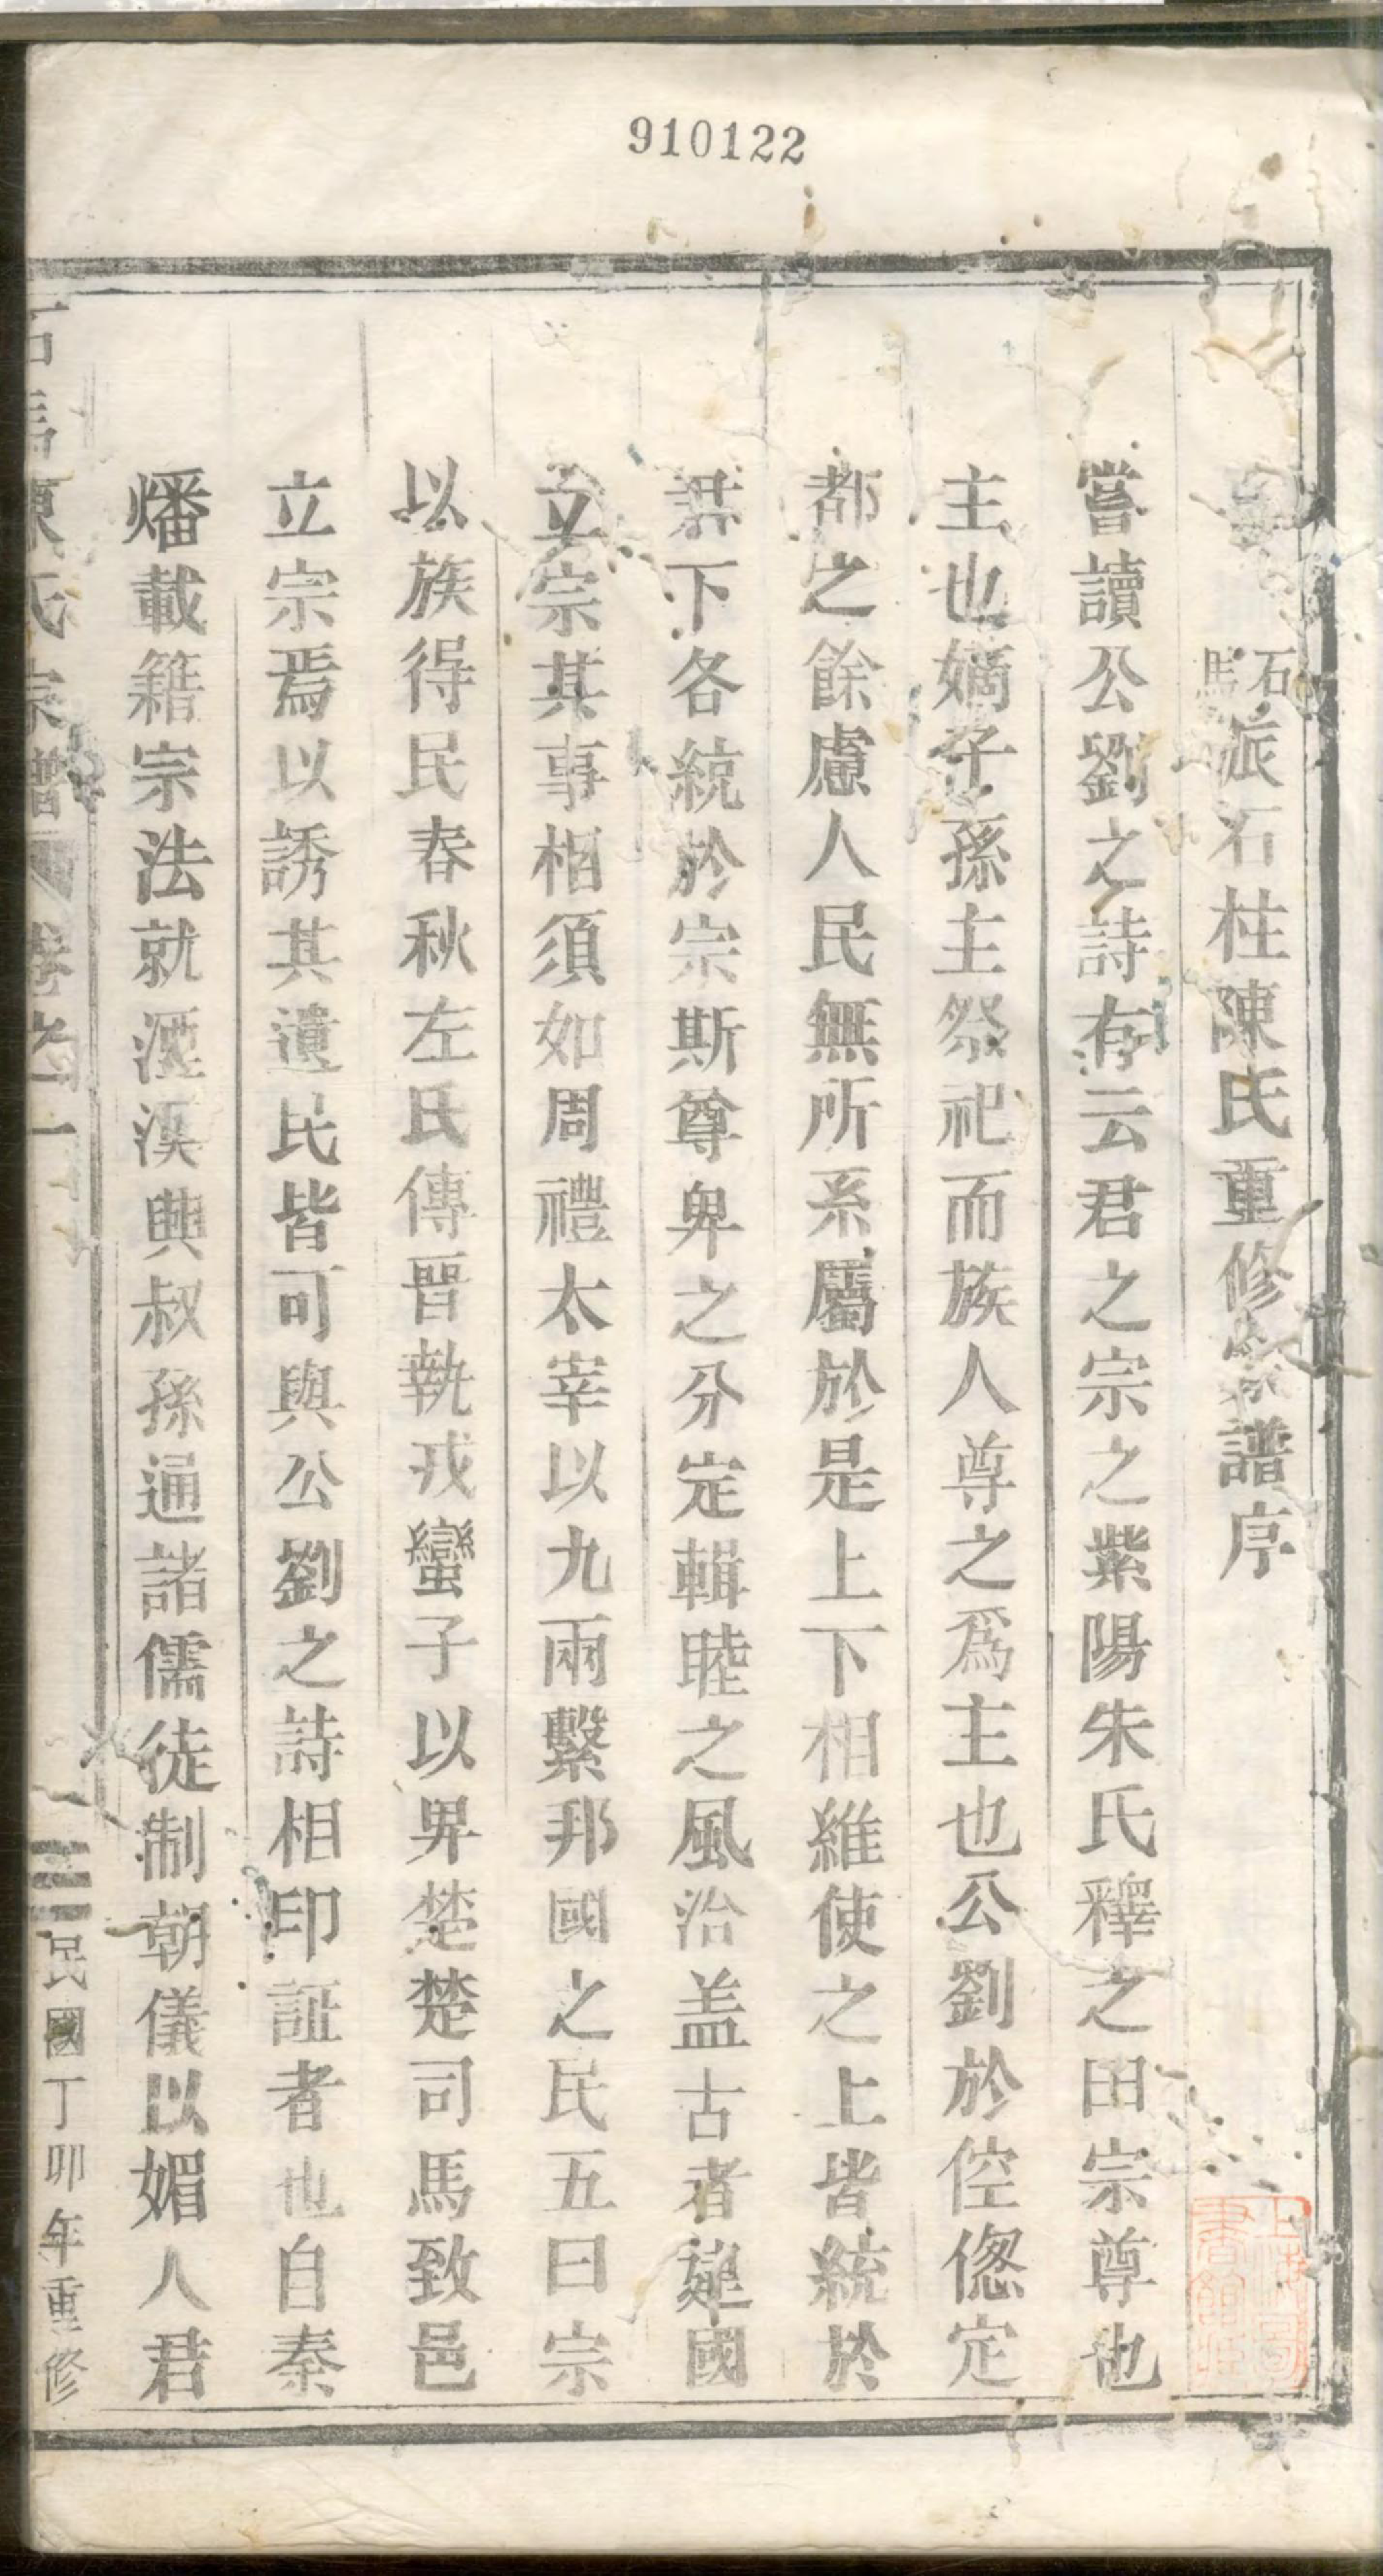 910122
石馬派石柱陳氏重修宗譜序
嘗讀公劉之詩有云君之宗之紫陽朱氏釋之曰宗尊也
主也嫡子孫主祭祀而族人尊之爲主也公劉於倥傯定
都之餘慮人民無所系屬於是上下相維使之上皆統於
君下各統於宗斯尊卑之分定輯睦之風洽盖古者建國
立宗其事相須如周禮太宰以九兩繫邦國之民五曰宗
以族得民春秋左氏傳晋執戎蠻子以畀楚楚司馬致邑
立宗焉以誘其遺民皆可與公劉之詩相印証者也自秦
燔載籍宗法就湮漢興叔孫通諸儒徒制朝儀以媚人君
石馬陳氏宗譜 卷之一 民國丁卯年重修